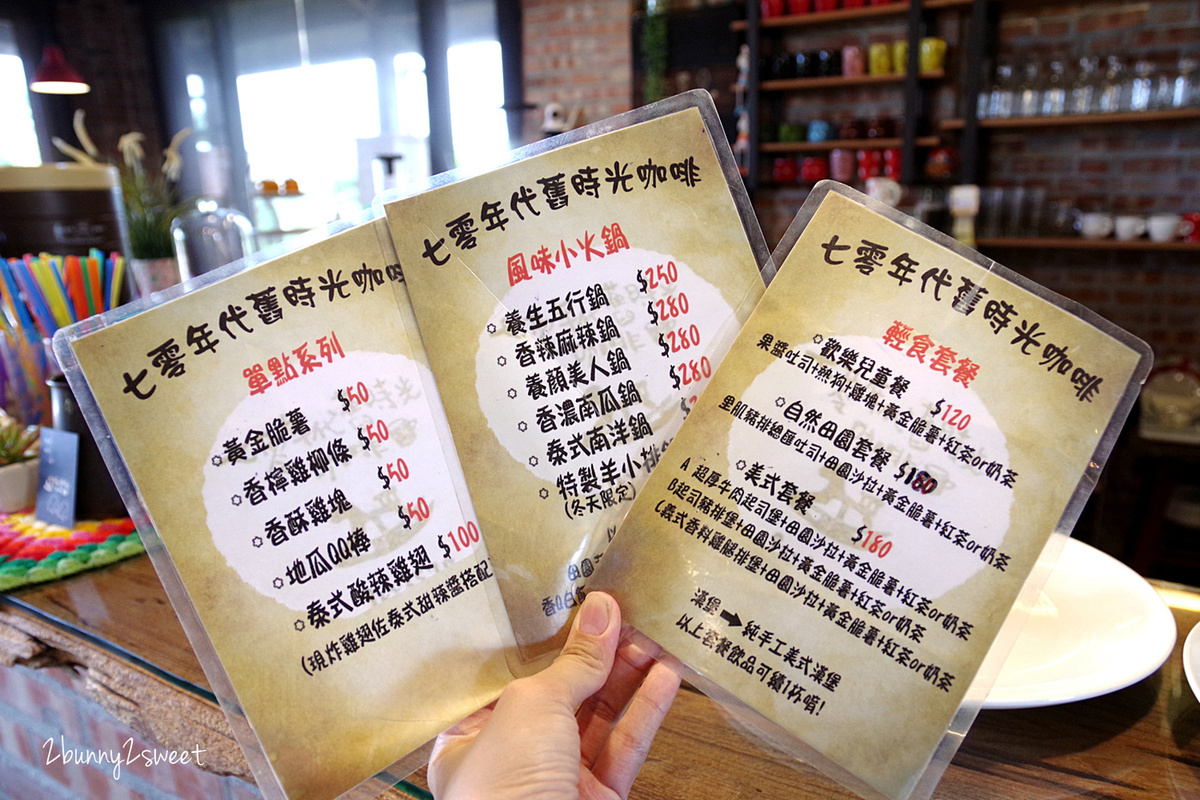 七零年代舊時光咖啡
單點系列
黃金脆薯 $50
香檸雞柳條 $50
香酥雞塊 $50
地瓜QQ棒 $50
泰式酸辣雞翅 $100
(現炸雞翅佐泰式甜辣醬搭配
七零年代舊時光咖啡
風味小火鍋
養生五行鍋 $250
香辣麻辣鍋 $280
養顏美人鍋 $280
香濃南瓜鍋 $280
泰式南洋鍋
特製羊小排
(冬天限定)
田園
香Q白
七零年代舊時光咖啡
輕食套餐
歡樂兒童餐 $120
果醬吐司+熱狗+雞塊+黃金脆薯+紅茶or奶茶
自然田園套餐 $180
里肌豬排總匯吐司+田園沙拉+黃金脆薯+紅茶or奶茶
美式套餐 $180
A 超厚牛肉起司堡+田園沙拉+黃金脆薯+紅茶or奶茶
B起司豬排堡+田園沙拉+黃金脆薯+紅茶or奶茶
C義式香料雞腿排堡+田園沙拉+黃金脆薯+紅茶or奶茶
漢堡➡純手工美式漢堡
以上套餐飲品可續1杯唷!
2bunny2sweet